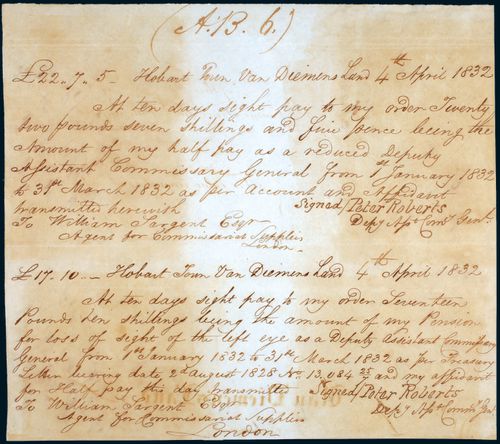 (A. B. 6.)
£22.,7.,5 - Hobart Town Van Diemens Land 4th April 1832
At ten days sight pay to my order Twenty
two pounds seven shillings and five pence being the
Amount of my half pay as a reduced Deputy
Assistant Commissary General from 1 January 1832
to 31st March 1832 as per account and Affidavit
transmitted herewith Signed/Peter Roberts
To William Sargent Esqr Depy Asst Comy Genl.
Agent for Commissariat Supplies
London.
£17.10.- Hobart Town Van Diemens Land 4th April 1832
At ten days sight pay to my order Seventeen
Pounds ten shillings being the amount of my Pension
for loss of sight of the left eye as a Deputy Assistant Commissary
General from 1st January 1832 to 31st March 1832 as per Treasury
Letter bearing date 2d August 1828 No. 13,084 25/ and my affidavit
for Half pay this day transmitted Signed/Peter Roberts
To William Sargent Esqr Depy Asst Commy Genl
Agent for Commissariat Supplies
London